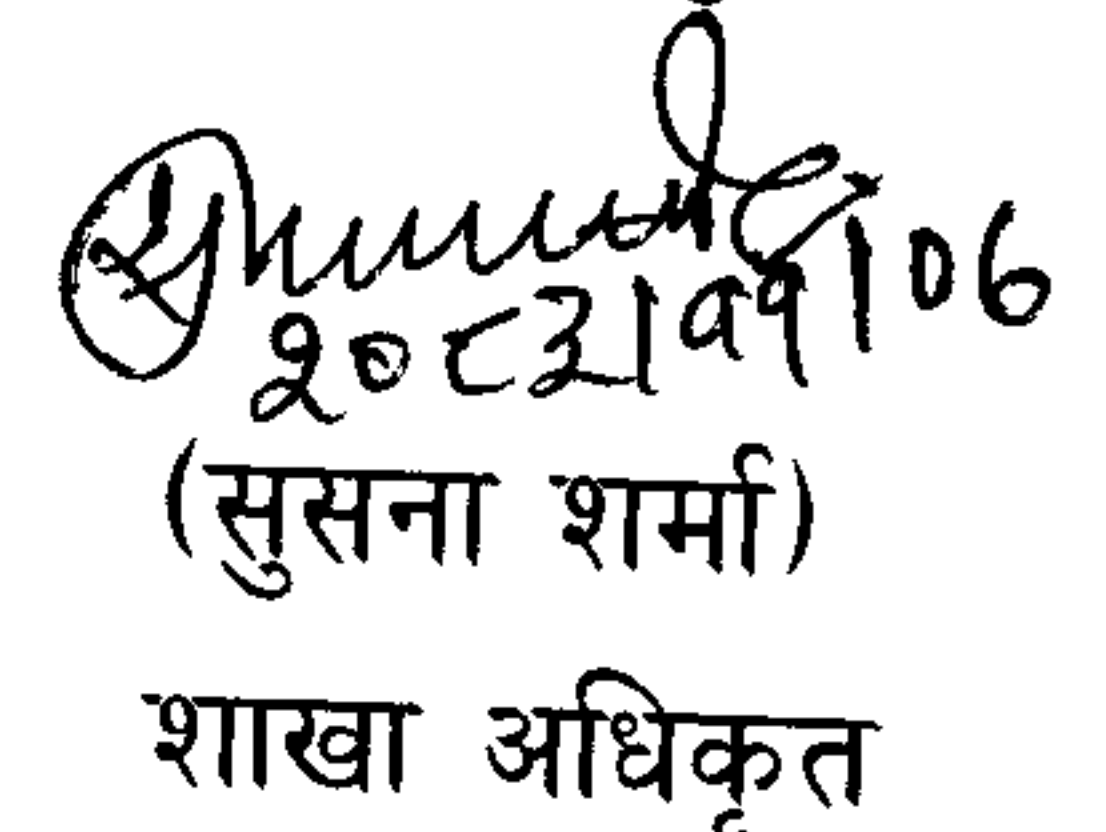 २०८३।११।०७
(सुसना शर्मा)
शाखा अधिकृत